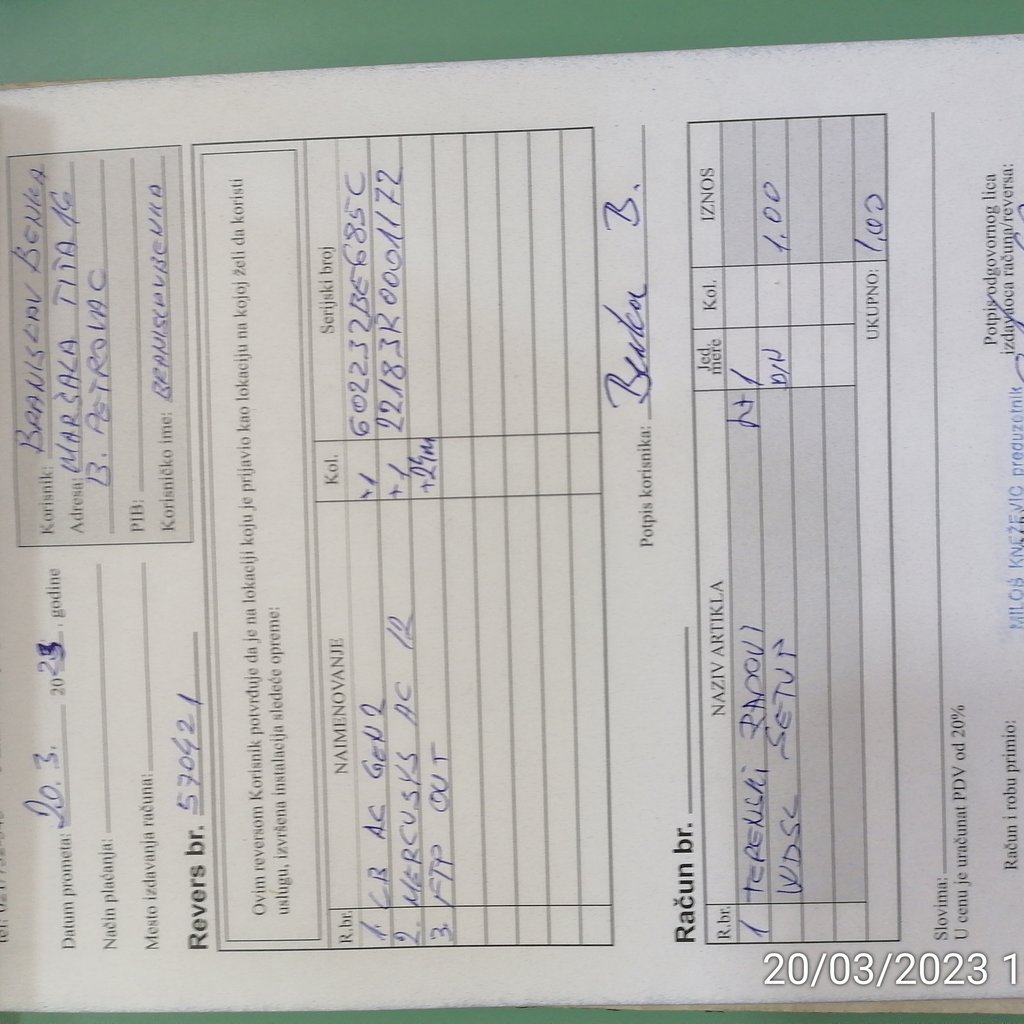 Korisnik: BRANISLAV BENKA
Adresa: MARŠALA TITA 46
B. PETROVAC
PIB:
Korisničko ime: BRANISLAVBENKA
Datum prometa: 20. 3. 2023. godine
Način plaćanja:
Mesto izdavanja računa:
Revers br. 570421
Ovim reversom Korisnik potvrđuje da je na lokaciji koju je prijavio kao lokaciju na kojoj želi da koristi
uslugu, izvršena instalacija sledeće opreme:
R.br. NAIMENOVANJE Kol. Serijski broj
1. LB AC GEN2 +1 602232BE685C
2. MERCUSYS AC 12 +1 22183R0001172
3. FTP OUT +24m
Potpis korisnika: Benka B.
Račun br.
R.br. NAZIV ARTIKLA Jed. mere Kol. IZNOS
1 TERENSKI RADOVI
WDSL SETUP DIN 1,00
UKUPNO: 1,00
Slovima:
U cenu je uračunat PDV od 20%
Račun i robu primio:
Potpis odgovornog lica
izdavaoca računa/reversa:
MILOŠ KNEŽEVIĆ preduzetnik
20/03/2023 1